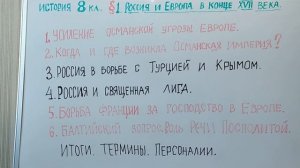 ИСТОРИЯ 8 КЛ. §1. РОССИЯ И ЕВРОПА В КОНЦЕ XVII ВЕКА.
1. УСИЛЕНИЕ ОСМАНСКОЙ УГРОЗЫ ЕВРОПЕ.
2. КОГДА И ГДЕ ВОЗНИКЛА ОСМАНСКАЯ ИМПЕРИЯ?
3. РОССИЯ В БОРЬБЕ С ТУРЦИЕЙ И КРЫМОМ.
4. РОССИЯ И СВЯЩЕННАЯ ЛИГА.
5. БОРЬБА ФРАНЦИИ ЗА ГОСПОДСТВО В ЕВРОПЕ.
6. БАЛТИЙСКИЙ ВОПРОС. РОЛЬ РЕЧИ ПОСПОЛИТОЙ.
ИТОГИ. ТЕРМИНЫ. ПЕРСОНАЛИИ.